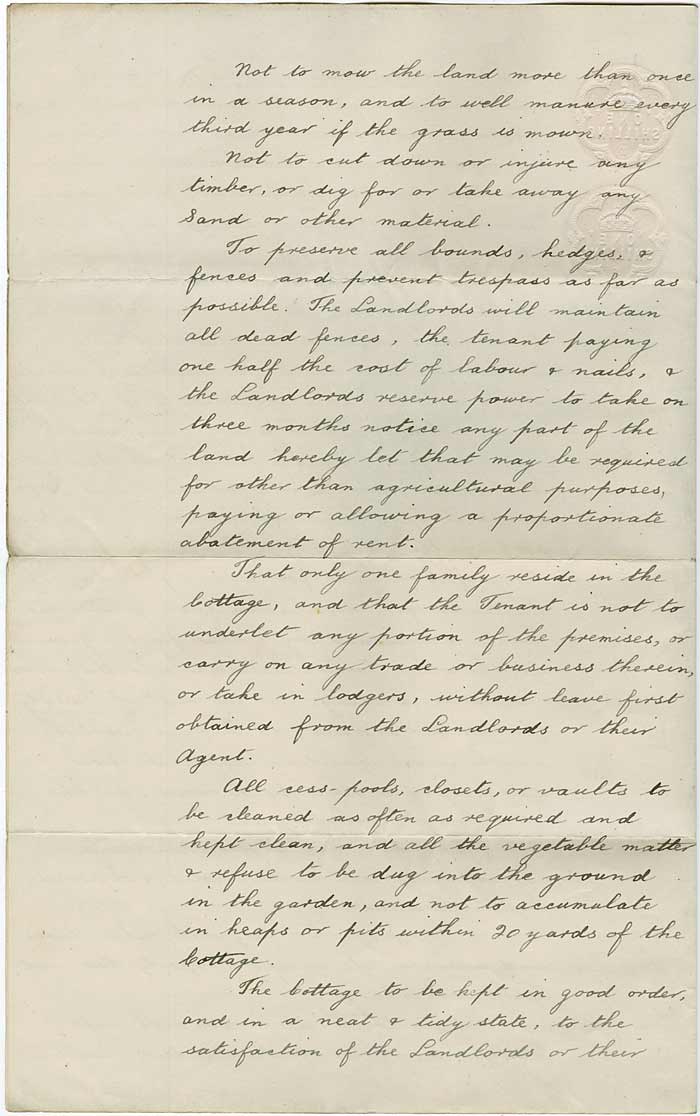 Not to mow the land more than once
in a season, and to well manure every
third year if the grass is mown.
Not to cut down or injure any
timber, or dig for or take away any
Sand or other material.
To preserve all bounds, hedges, &
fences and prevent trespass as far as
possible. The Landlords will maintain
all dead fences, the tenant paying
one half the cost of labour & nails, &
the Landlords reserve power to take on
three months notice any part of the
land hereby let that may be required
for other than agricultural purposes,
paying or allowing a proportionate
abatement of rent.
That only one family reside in the
Cottage, and that the Tenant is not to
underlet any portion of the premises, or
carry on any trade or business therein,
or take in lodgers, without leave first
obtained from the Landlords or their
Agent.
All cess-pools, closets, or vaults to
be cleaned as often as required and
kept clean, and all the vegetable matter
& refuse to be dug into the ground
in the garden, and not to accumulate
in heaps or pits within 20 yards of the
Cottage.
The Cottage to be kept in good order,
and in a neat & tidy state, to the
satisfaction of the Landlords or their